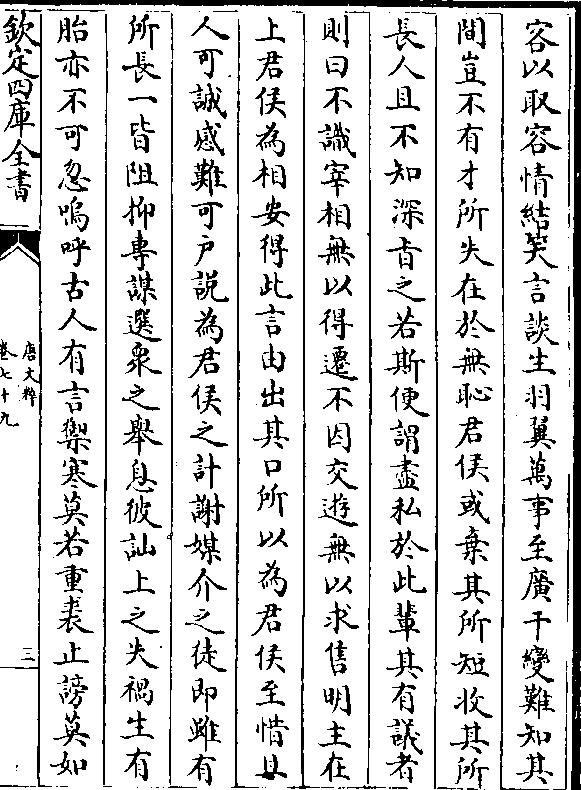 容以取容情結笑言談生羽翼萬事至廣千變難知其
間豈不有才所失在於無恥君侯或棄其所短收其所
長人且不知深旨之若斯便謂盡私於此輩其有議者
則曰不識宰相無以得遷不因交遊無以求售明主在
上君侯為相安得此言由出其口所以為君侯至惜且
人可誠感難可户説為君侯之計謝媒介之徒即雖有
所長一皆阻抑專謀選衆之舉息彼訕上之失禍生有
胎亦不可忽嗚呼古人有言禦寒莫若重裘止謗莫如
欽定四庫全書
唐文粹
卷七十九
三